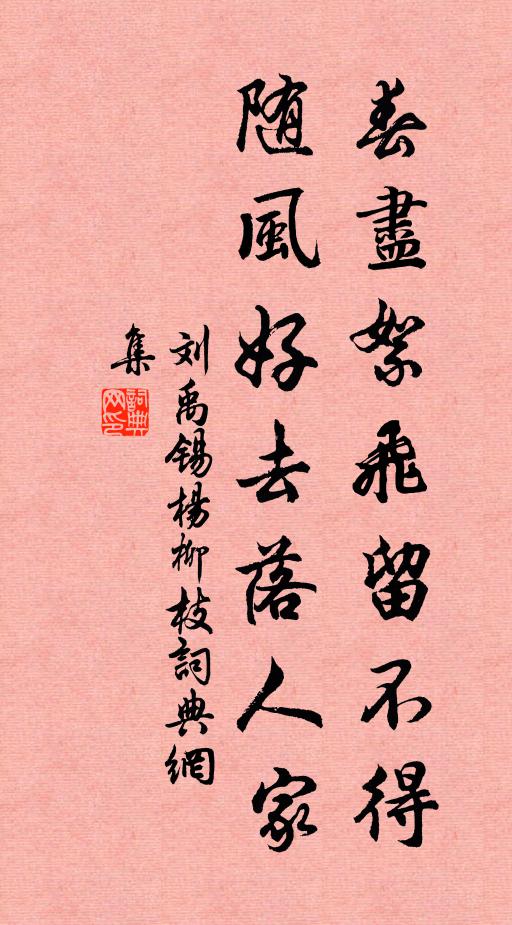 春盡絮飛留不得
随風好去落人家
刘禹锡楊柳枝詞典網
集
詞典网印